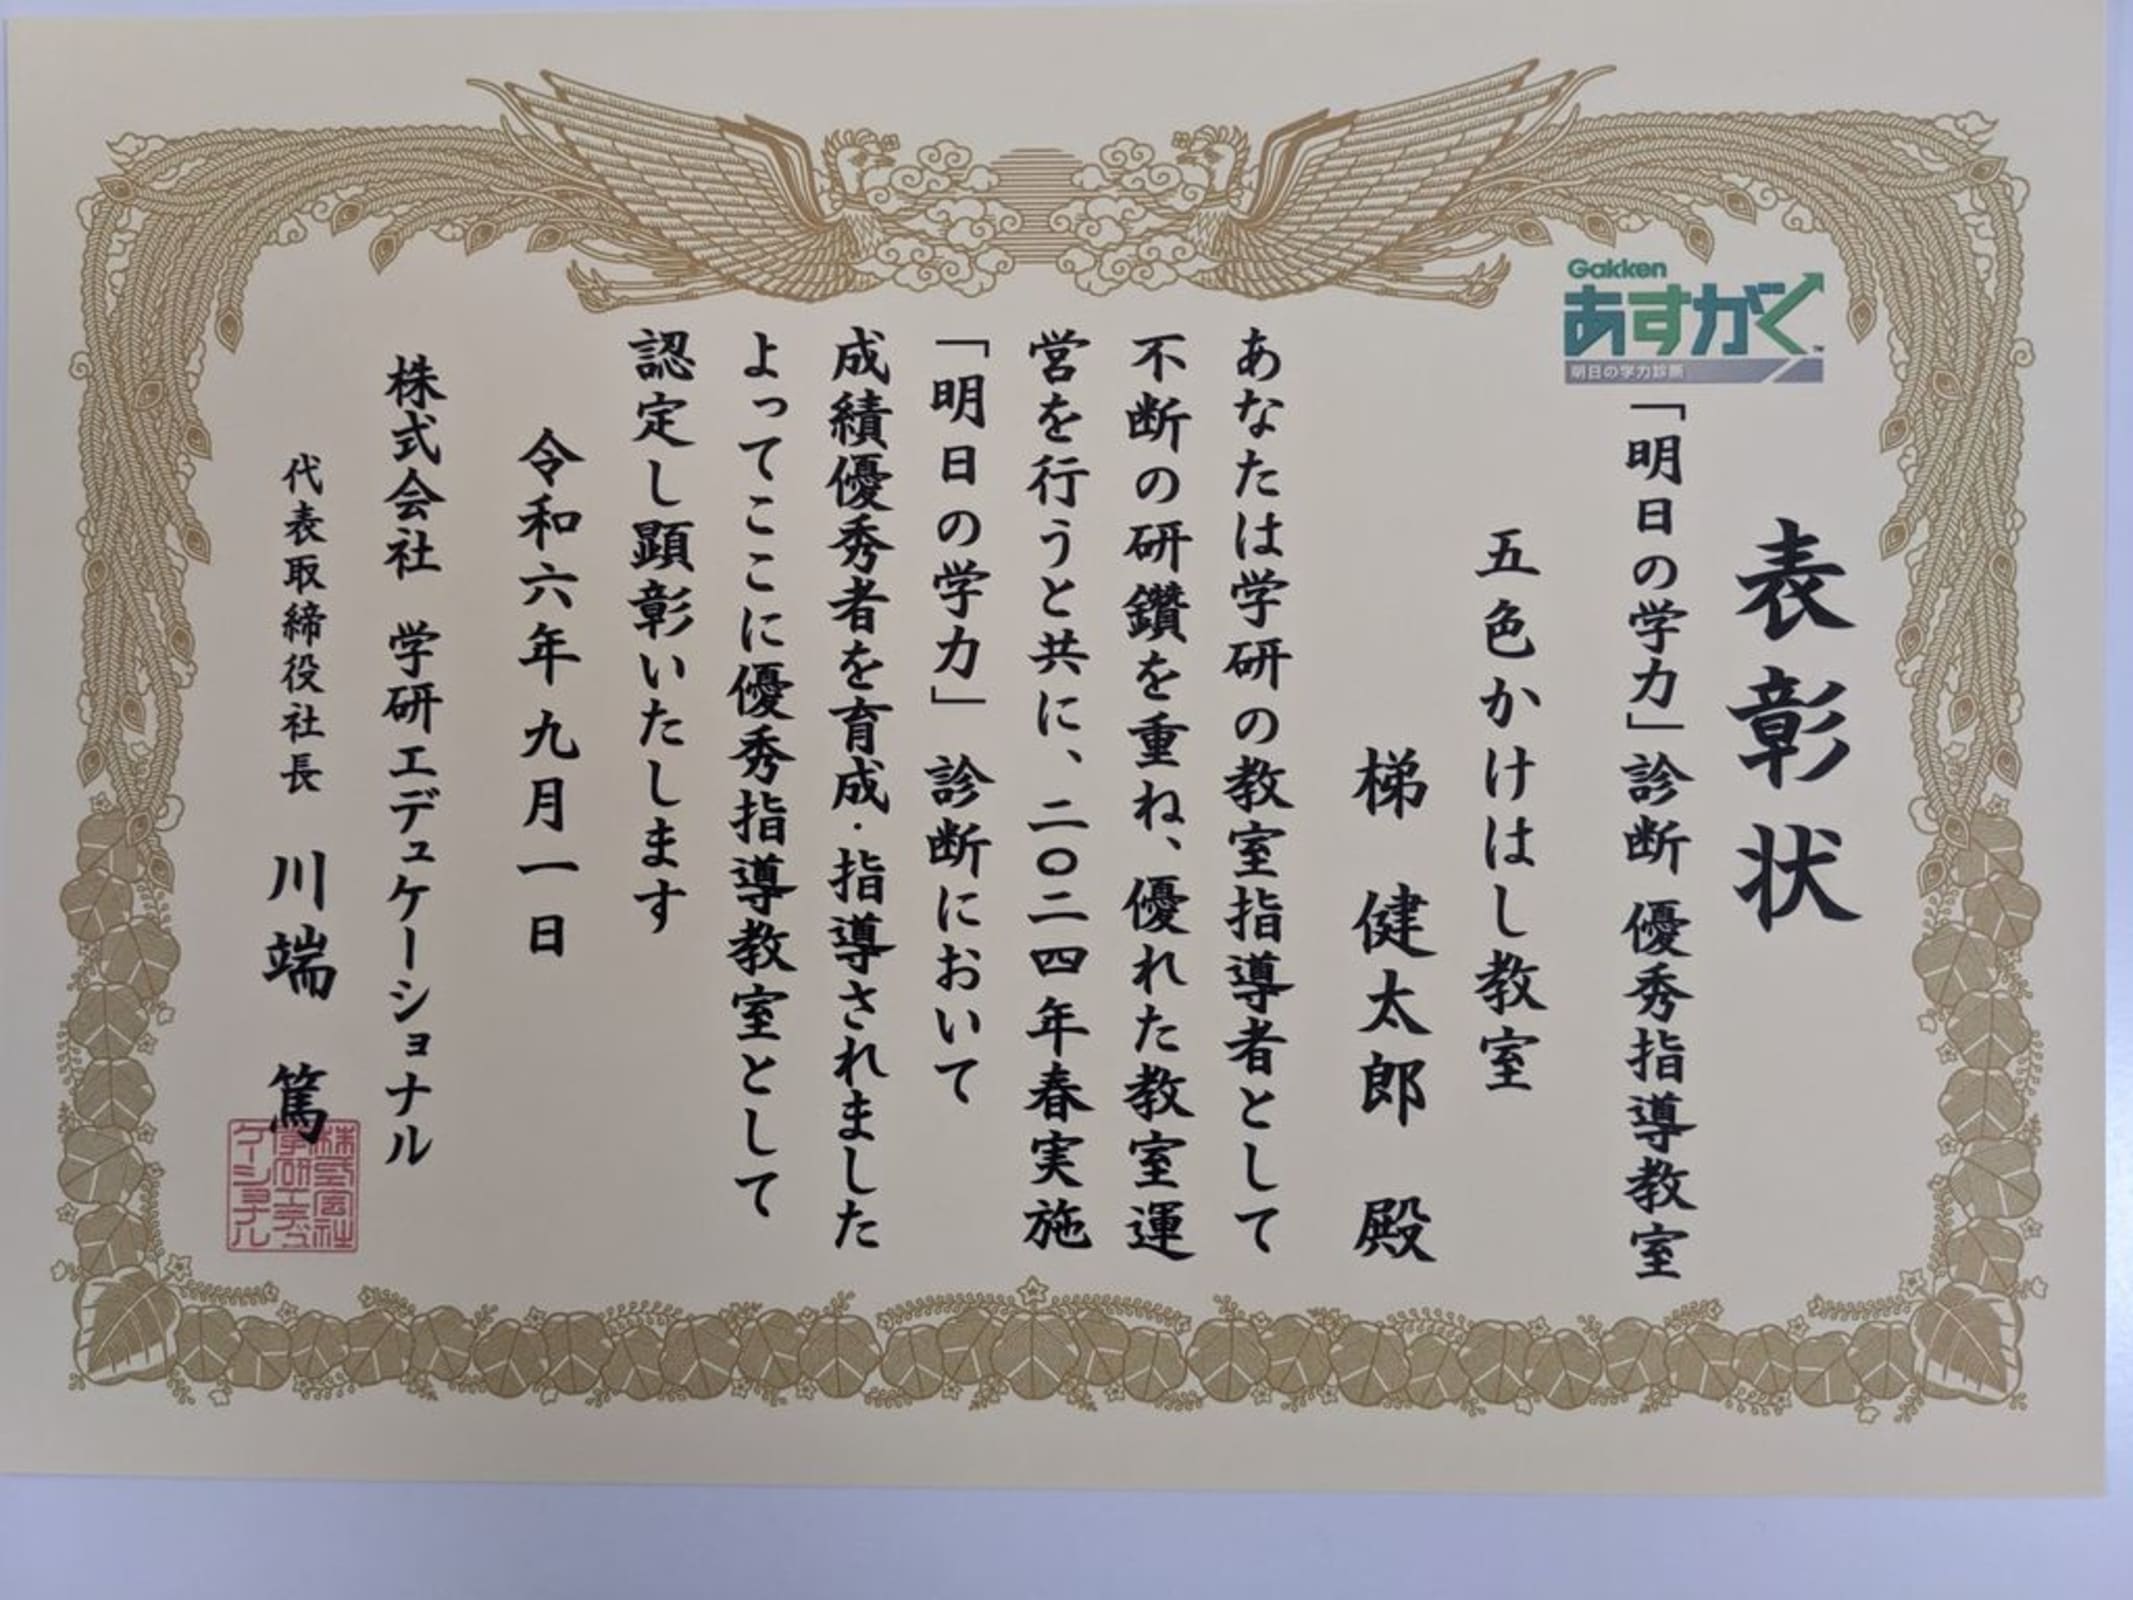 表彰状
Gakken
あすがく
明日の学力診断
「明日の学力」診断 優秀指導教室
五色かけはし教室
梯 健太郎 殿
あなたは学研の教室指導者として
不断の研鑽を重ね、優れた教室運
営を行うと共に、二〇二四年春実施
「明日の学力」診断において
成績優秀者を育成・指導されました
よってここに優秀指導教室として
認定し顕彰いたします
令和六年九月一日
株式会社 学研エデュケーショナル
代表取締役社長 川端 篤
株式会社
学研エデュ
ケーショナル